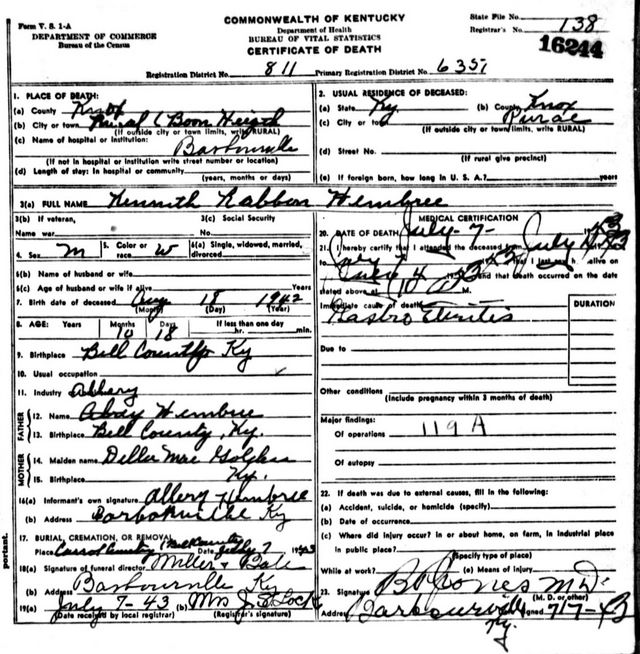 Form V. S. 1-A
DEPARTMENT OF COMMERCE
Bureau of the Census
COMMONWEALTH OF KENTUCKY
Department of Health
BUREAU OF VITAL STATISTICS
CERTIFICATE OF DEATH
State File No.
Registrar's No. 138
16244
Registration District No. 811 Primary Registration District No. 6351
1. PLACE OF DEATH:
(a) County Knox
(b) City or town Rural (Boon Heigth
(If outside city or town limits, write RURAL)
(c) Name of hospital or institution: Barbourville
(If not in hospital or institution write street number or location)
(d) Length of stay: In hospital or community
(years, months or days)
2. USUAL RESIDENCE OF DECEASED:
(a) State Ky (b) County Knox
(c) City or town Rural
(If outside city or town limits, write RURAL)
(d) Street No.
(If rural give precinct)
(e) If foreign born, how long in U. S. A.? years
3(a) FULL NAME Kennith Rabbon Hembree
3(b) If veteran, 3(c) Social Security
Name war No.
4. Sex M 5. Color or race W 6(a) Single, widowed, married, divorced
6(b) Name of husband or wife
6(c) Age of husband or wife if alive Years
7. Birth date of deceased Aug 18 1942
(Month) (Day) (Year)
8. AGE: Years Months Days If less than one day
10 18 hr. min.
9. Birthplace Bell County Ky
10. Usual occupation
11. Industry
FATHER
12. Name Hembree
13. Birthplace Bell County, Ky.
MOTHER
14. Maiden name Della Mae Golden
15. Birthplace Ky.
16(a) Informant's own signature Allery Hembree
(b) Address Barbourville Ky
17. BURIAL, CREMATION, OR REMOVAL
Place Cemetery (Bell County) Date July 7 1943
18(a) Signature of funeral director Miller
(b) Address Barbourville Ky
19(a) July 7-43 (b) Mrs J. E. Locke
(Date received by local registrar) (Registrar's signature)
MEDICAL CERTIFICATION
20. DATE OF DEATH July-7- 1943
21. I hereby certify that I attended the deceased from July
to and that I last saw h alive on
and that death occurred on the date
stated above at M.
Immediate cause of death
DURATION
Due to
Other conditions
(Include pregnancy within 3 months of death)
Major findings:
Of operations 119 A
Of autopsy
22. If death was due to external causes, fill in the following:
(a) Accident, suicide, or homicide (specify)
(b) Date of occurrence
(c) Where did injury occur? in or about home, on farm, in industrial place
in public place?
(Specify type of place)
While at work? (e) Means of injury
23. Signature Jones M D.
(M. D. or other)
Address Barbourville signed 7/7-43
Ky.
portant.